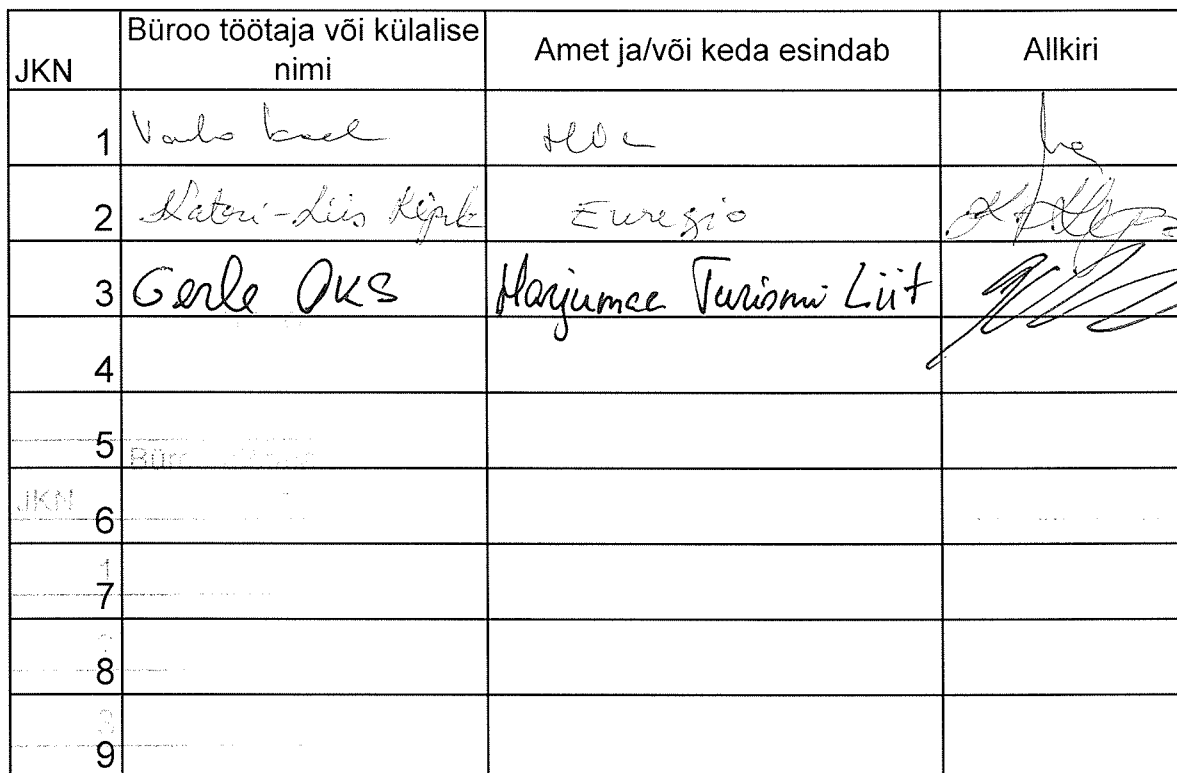 JKN
Büroo töötaja või külalise
nimi
Amet ja/või keda esindab
Allkiri
1
2 Katri-Liis Euregio
3 Gerle Oks Harjumaa Turismi Liit
4
5
JKN
6
1
7
8
9